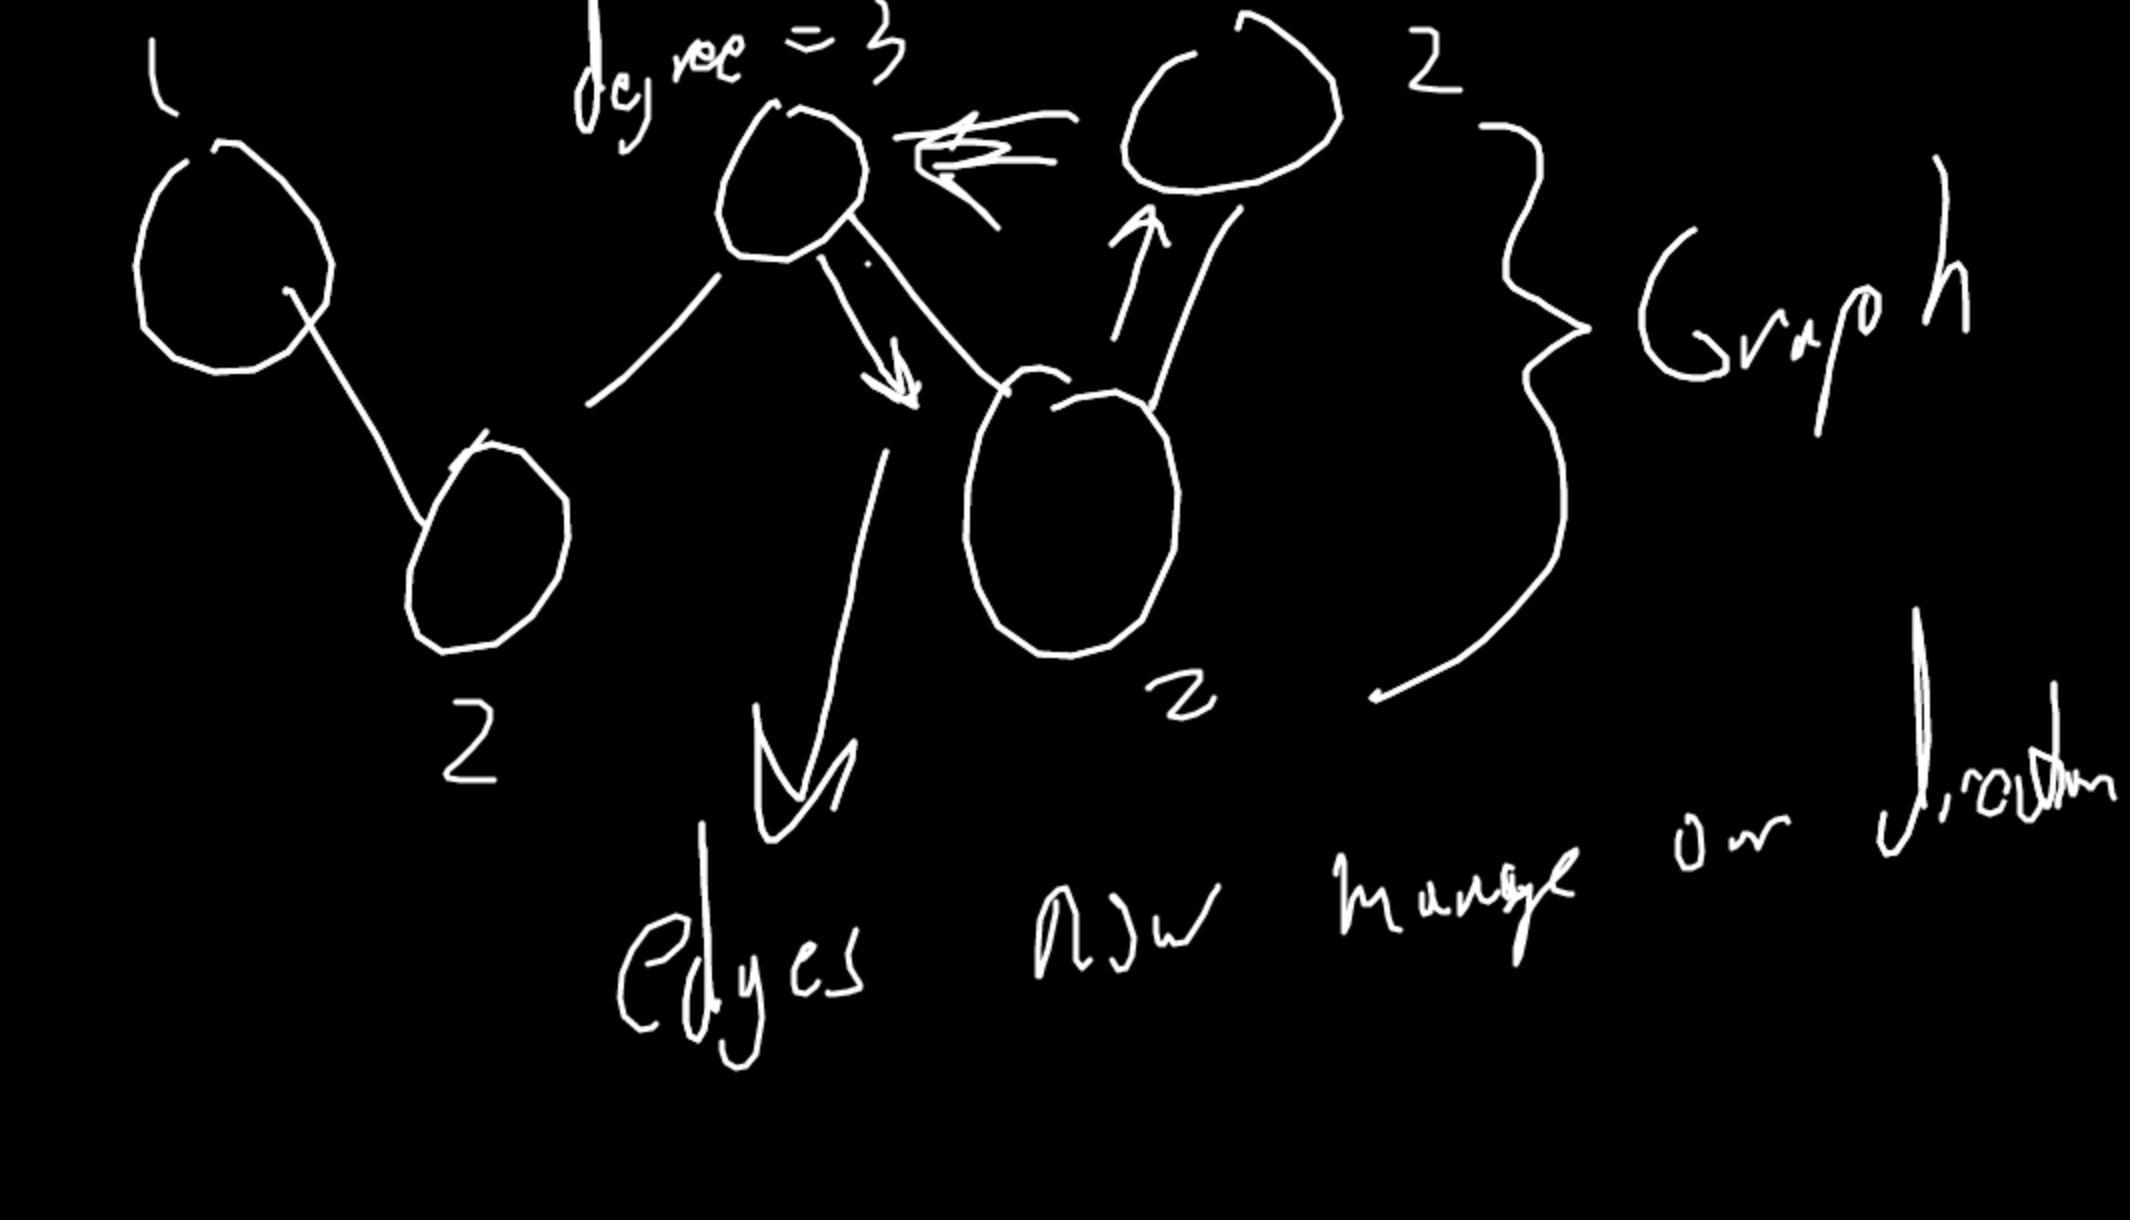 1
degree = 3
2
Graph
2
2
edges now manage our direction